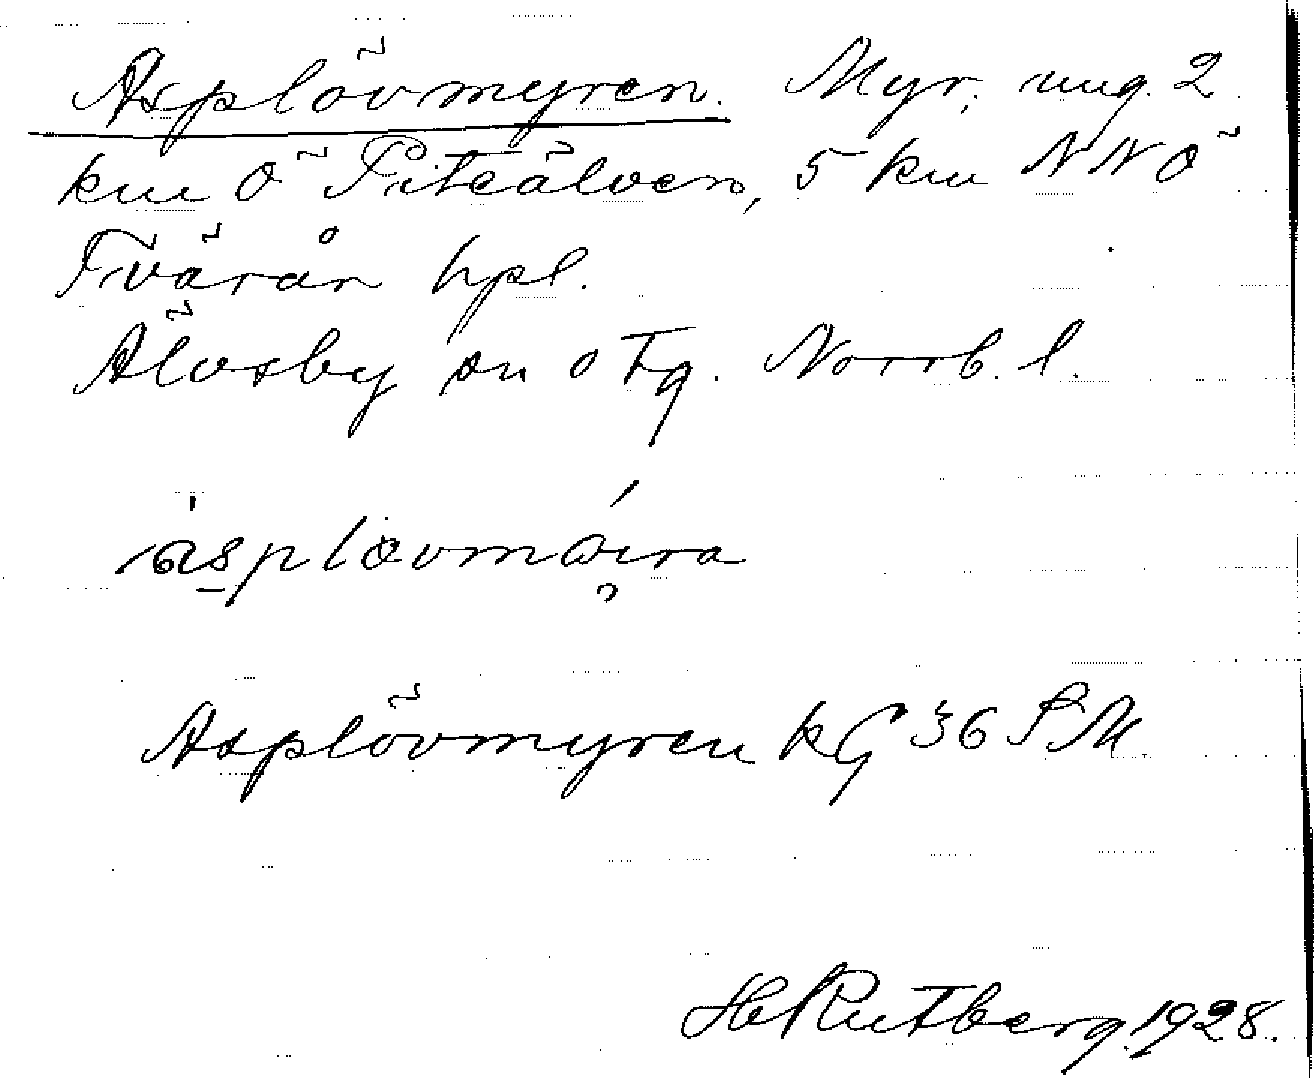 Asplövmyren. Myr, ung. 2
km Ö Piteälven, 5 km NNÖ
Tvärån hpl.
Älvsby sn o tg. Norrb. l.
Asplövmyren kG 36 SM
H Rutberg. 1928.